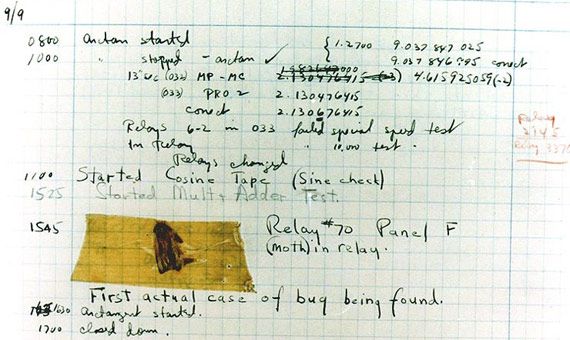 9/9
0800 Antan started { 1.2700 9.037 847 025
1000 " stopped - antan ✓ 9.037 846 995 conect
13"uc (032) MP - MC 2.130476415 (-3) 4.615925059(-2)
(033) PRO 2 2.130476415
conect 2.130676415
Relays 6-2 in 033 failed special speed test
In Relay " 10,000 test .
Relays changed
1100 Started Cosine Tape (Sine check)
1525 Started Mult + Adder Test.
1545 Relay #70 Panel F
(moth) in relay.
First actual case of bug being found.
1630 antangent started.
1700 closed down.
Relay
2145
Relay 3370